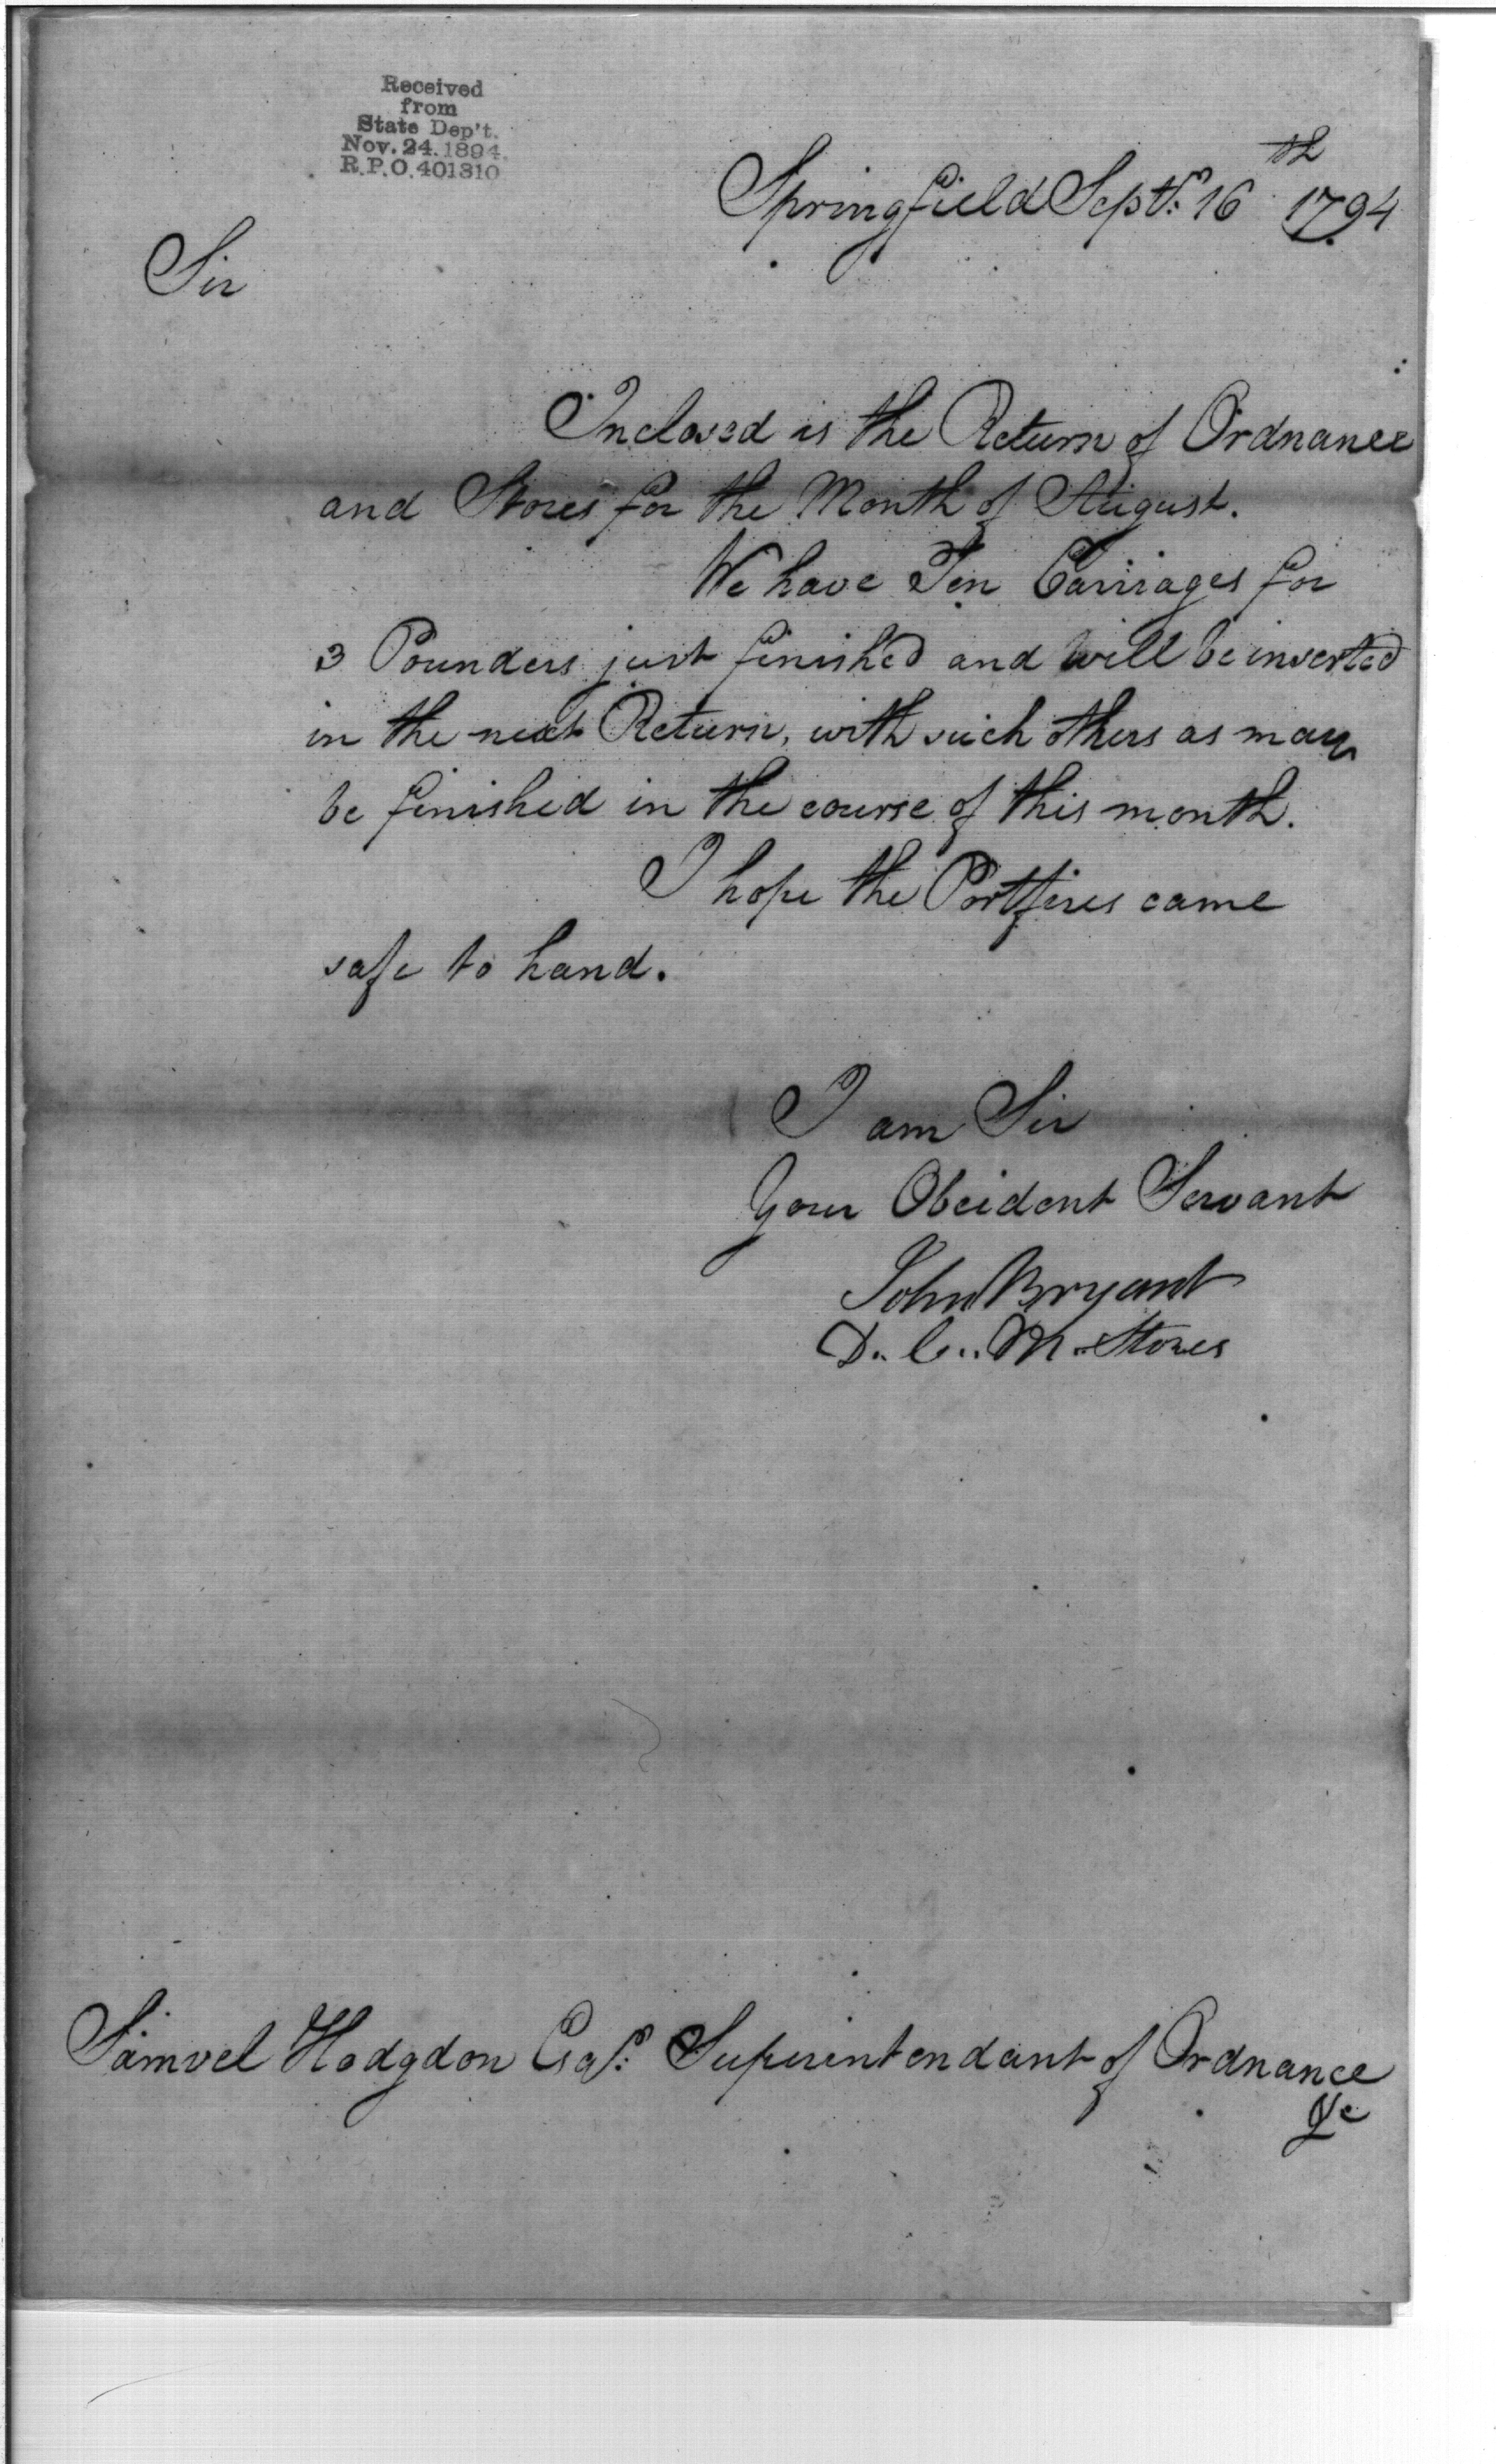 Received
from
State Dep't.
Nov. 24. 1894.
R.P.O. 401310
Springfield Septr: 16th 1794
Sir
Inclosed is the Return of Ordnance
and Stores for the Month of August.
We have Ten Carriages for
3 Pounders just finished and will be inserted
in the next Return, with such others as may
be finished in the course of this month.
I hope the Portfires came
safe to hand.
I am Sir
Your Obeident Servant
John Bryant
D.. C.. M.. Stores
Samuel Hodgdon Esqr: Superintendant of Ordnance
&c